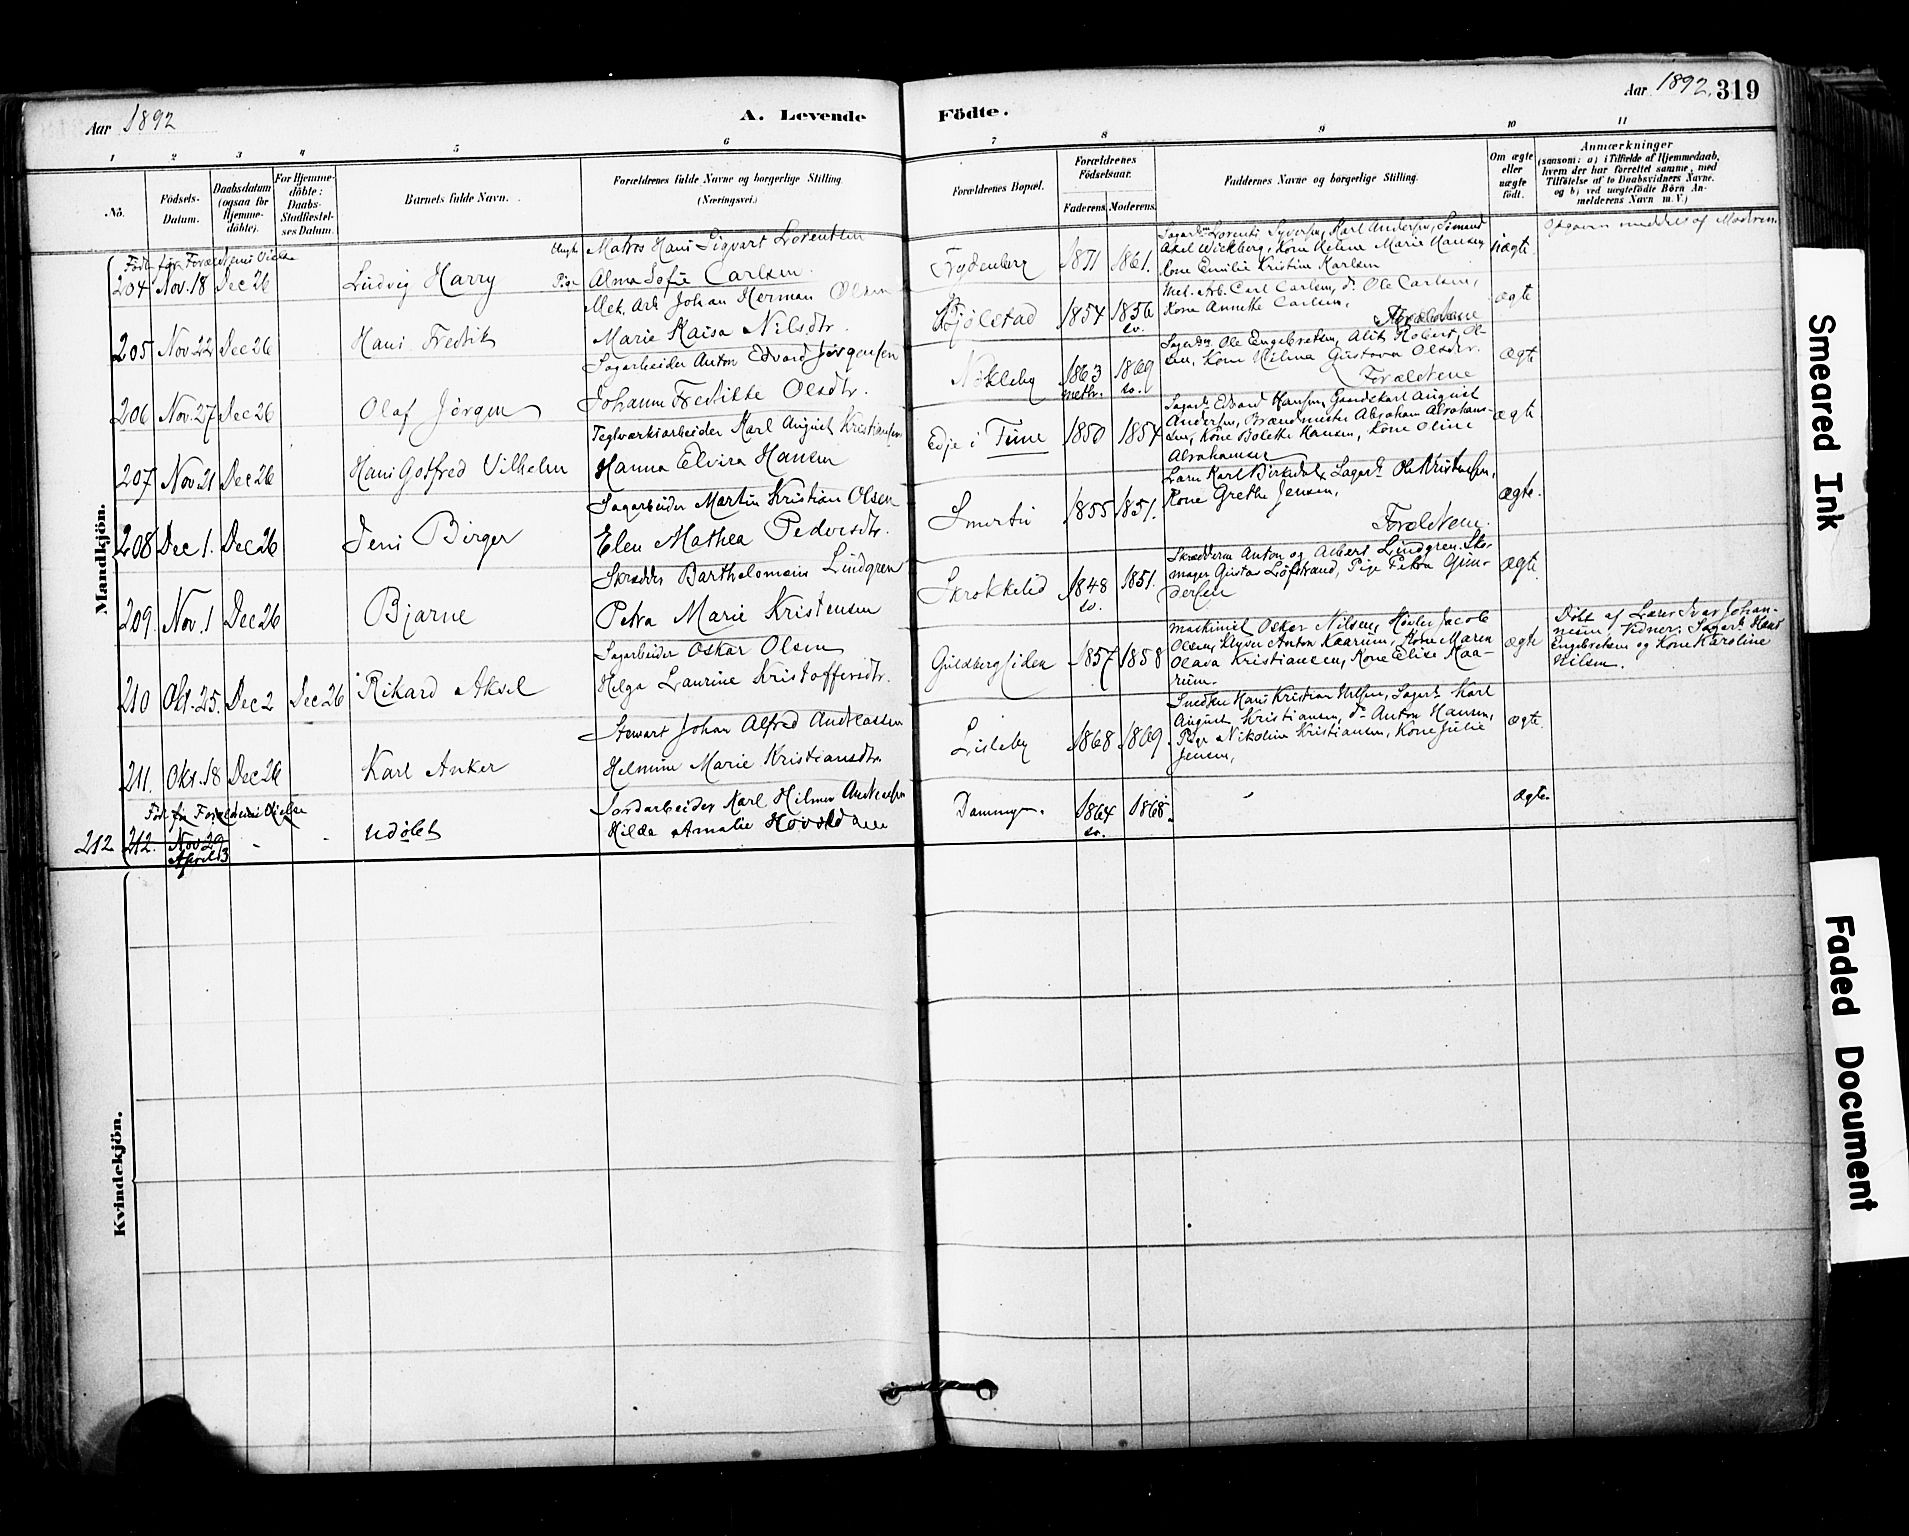 Aar 1892
A. Levende
Födte.
Aar 1892.
319
1 2 3 4 5 6 7 8 9 10 11
No.
Födsels-
Datum.
Daabsdatum
(ogsaa for
Hjemme-
döbte).
For Hjemme-
döbte:
Daabs-
Stadfæstel-
ses Datum.
Barnets fulde Navn.
Forældrenes fulde Navne og borgerlige Stilling
(Næringsvei.)
Forældrenes Bopæl.
Forældrenes
Födselsaar.
Faderens.
Moderens.
Faddernes Navne og borgerlige Stilling.
Om ægte
eller
uægte
födt.
Anmærkninger
(saasom: a) i Tilfælde af Hjemmedaab,
hvem der har forrettet samme, med
Tilföielse af to Daabsvidners Navne.
og b) ved uægtefödte Börn An-
melderens Navn m. V.)
Mandkjön.
Født før Forældrenes Vielse
204 Nov. 18 Dec 26
Ludvig Harry
Ungk. Matros Hans Sigvart Lorentzen
Pige Alma Sofie Carlsen
1871 1861.
Sagarb. Lorents Syversen, Karl Andersen, Sömand
Axel Wickberg, Kone Helene Marie Hansen
Kone Emilie Kristine Karlsen
uægte
Opgaven meddelt af Moderen.
205 Nov 22 Dec 26
Hans Fredrik
Mek. Arb. Johan Herman Olsen
Marie Kaisa Nilsdtr.
Kjölstad
1854 1856
sv.
Mek. Arb. Carl Carlsen, do Ole Carlsen,
Kone Annette Carlsen,
Forældrene
ægte
206 Nov. 27 Dec 26
Olaf Jørgen
Sagarbeider Anton Edvard Jørgensen
Johanne Fredrikke Olsdtr.
Nökleby
1863 1869
meth. sv.
Sagarb. Ole Engebretsen, Robert Ol-
sen, Kone Gustava Olsdtr.
Forældrene
ægte
207 Nov. 21 Dec 26
Hans Gotfred Vilhelm
Teglværksarbeider Karl August Kristiansen
Hanna Elvira Hansen
Edje i Tune
1850 1854
Sagarb. Edvard Hansen, Gaardskarl August
Andersen, Brændmester Abraham Abraham-
sen, Kone Bolette Hansen, Kone Oline
Abrahamsen
ægte
208 Dec 1. Dec 26
Jens Birger
Sagarbeider Martin Kristian Olsen
Elen Mathea Pedersdtr.
Smertu
1855 1851.
Lærer Karl Birkedal, Sagarb. Ole Kristensen,
Kone Grethe Jensen,
Forældrene.
ægte.
209. Nov. 1 Dec 26
Bjarne
Skrædder Bartholomæus Lindgren
Petra Marie Kristensen
Skrokkelid
1848 1851.
sv.
Skrædderne Anton og Albert Lindgren. Sko-
mager Gustav Löfstrand, Pige Petra Gun-
dersen
ægte.
210 Okt. 25. Dec 2 Dec 26
Rikard Aksel
Sagarbeider Oskar Olsen
Helga Laurine Kristoffersdtr.
Guldbergsiden
1857 1858
Maskinist Oskar Nilsen, Høvler Jacob
Olsen, Anton Kaarum, Kone Maren
Olava Kristiansen, Kone Elise Kaa-
rum.
ægte
Döbt af Lærer Ivar Johan-
nesen, Vidner: Sagarb. Hans
Engebretsen og Kone Karoline
Nilsen.
211. Okt. 18 Dec 26
Karl Anker
Stewart Johan Alfred Andreassen
Helmine Marie Kristiansdtr.
Lisleby
1868 1869.
Smedken Hans Kristian Nilsen, Sagarb. Karl
August Kristiansen, do Anton Hansen,
Pige Nikoline Kristiansen, Kone Julie
Jensen,
ægte.
Født før Forældrenes Vielse
212 212. Nov 29 - -
April 13
udöbt
Jordarbeider Karl Hilmer Andreasen
Hilda Amalie
Dammyr.
1864 1868.
sv.
"
ægte.
Kvindekjön.
Smeared Ink
Faded Document